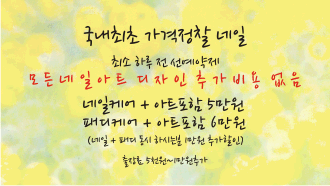 국내최초 가격정찰 네일
최소 하루 전 선예약제
모든네일아트 디자인추가비용 없음
네일케어 + 아트포함 5만원
패디케어 + 아트포함 6만원
(네일 + 패디 동시 하시는분 1만원 추가할인)
출장료 5천원~1만원추가